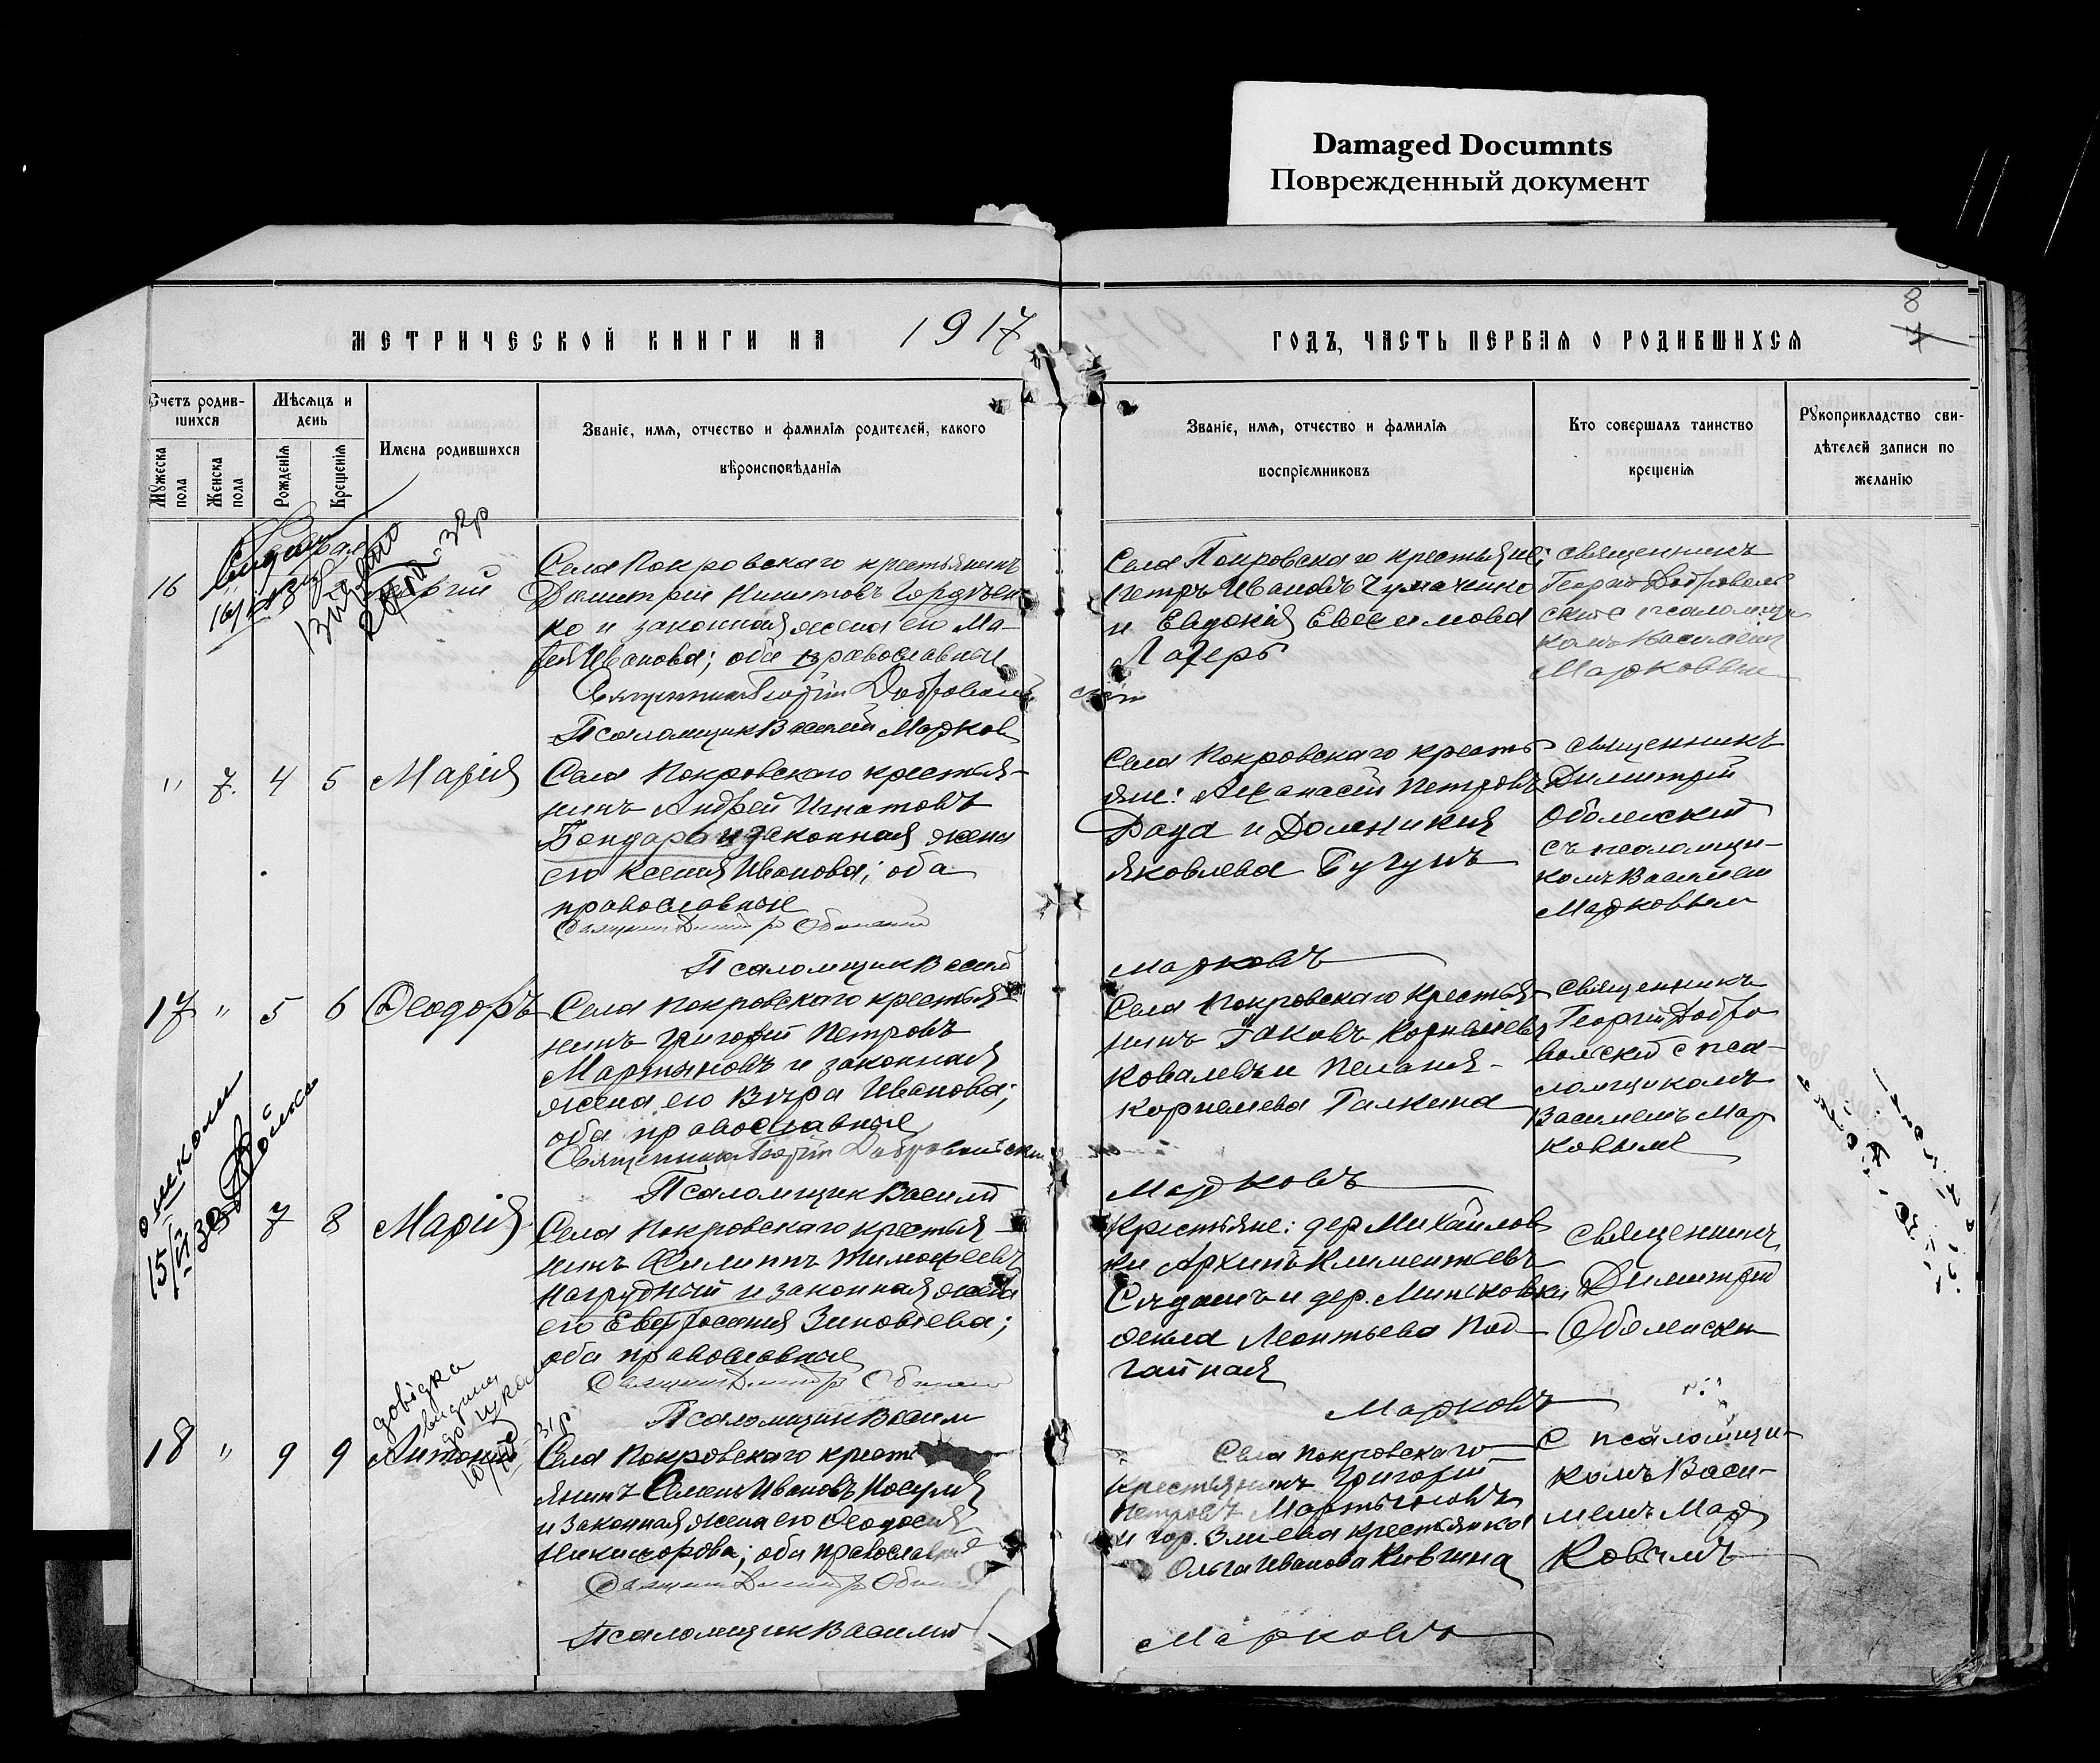 Damaged Documnts
Поврежденный документ
МЕТРИЧЕСКОЙ КНИГИ НА 1917
ГОДЪ, ЧАСТЬ ПЕРВАЯ О РОДИВШИХСЯ
8
7
Счетъ родив-
шихся
Мужеска пола
Женска пола
Мѣсяцъ и
день
Рожденія
Крещенія
Имена родившихся
Званіе, имя, отчество и фамилія родителей, какого
вѣроисповѣданія
Званіе, имя, отчество и фамилія
воспріемниковъ
Кто совершалъ таинство
крещенія
Рукоприкладство сви-
дѣтелей записи по
желанію
16
Села Покровскаго крестьянинъ
Димитрій Никитовъ Гордѣен-
ко и законная жена его Ма-
Иванова; оба православные
Священник Георгій Добровольскій
Псаломщик Василій Марков
Села Покровскаго крестьяне:
Петръ Ивановъ Чумаченко
и Евдокія Евсимова
Лазерь
Священникъ
Георгій Доброволь
скій с псаломщи
комъ Василіем
Марковым
" 7. 4 5 Марія
Села Покровскаго крестья-
нинъ Андрей Игнатовъ
Бондарь и законная жена
его Ксенія Иванова; оба
православные
Псаломщик Васлий
Марковъ
Села Покровскаго кресть
яне: Аѳанасій Петровъ
и Доминикія
Яковлева Бугунъ
Священникъ
Димитрій
Оболенскій
съ псаломщи-
комъ Василіем
Марковым
17 " 5 6 Ѳеодоръ
Села Покровскаго крестья-
нинъ Григорій Петровъ
Мартыновъ и законная
жена его Вѣра Иванова;
оба православные
Священник Георгій Добровольскій
Псаломщик Василій
Марковъ
Села Покровскаго крестья-
нинъ Іаковъ Корнилiевъ
Ковалевъ и Пелагія
Корнилева Галкина
Священникъ
Георгій Добро
вольскій с пса-
ломщикомъ
Василіемъ Мар
ковымъ
7 8 Марія
Села Покровскаго крестья-
нинъ Филиппъ Тимоѳеевъ
Нагрудный и законная жена
его Евфросинія Зиновіева;
оба православные
Псаломщик Васили
Марковъ
Крестьяне: дер. Михайлов
ки Архипъ Климентьевъ
и дер. Миньковки
Леонтьева Под-
гайная
Священникъ
Димитрій
Оболенскій
довідка
видана
18 " 9 9 Антоній
Села Покровскаго кресть
янинъ Семенъ Ивановъ Носуля
и законная жена его Ѳеодосія
Никифорова; оба православные
Псаломщик Василій
Марковъ
Села Покровскаго
крестьянинъ Григорій
Петровъ Мартыновъ
и гор. Зміева крестьянка
Ольга Иванова Ковзина
с псаломщи-
комъ Васи-
ліемъ Мар
ковымъ